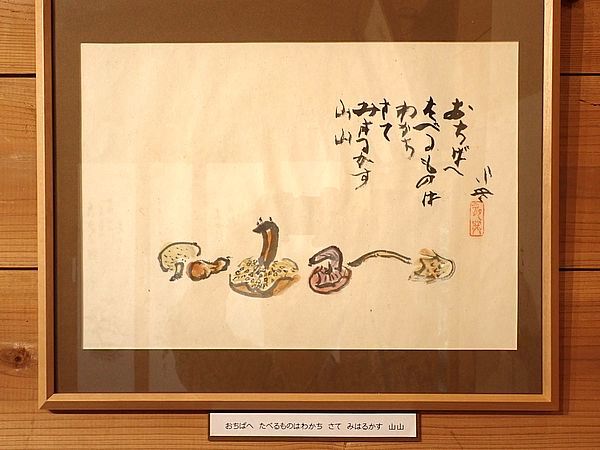 おちばへ
たべるものは
わかち
さて
みはるかす
山山
おちばへ たべるものはわかち さて みはるかす 山山